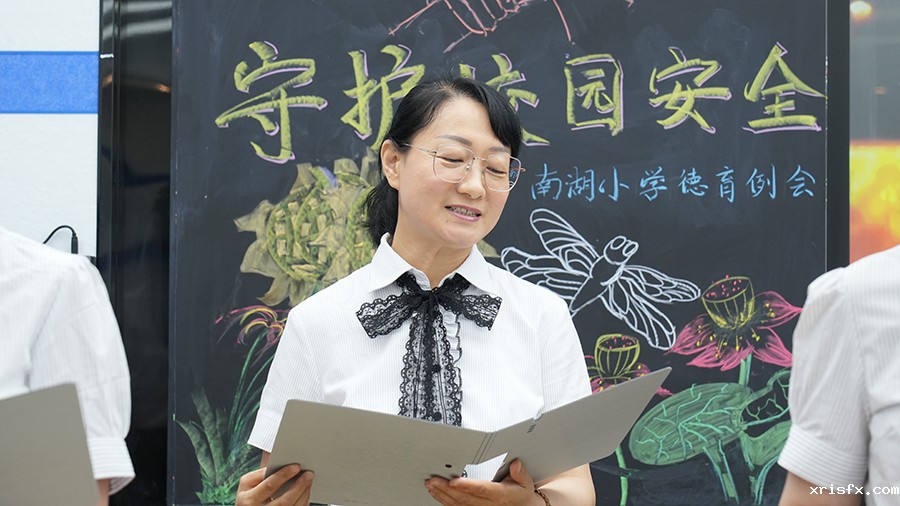 守护校园安全
南湖小学德育例会
xrisfx.com